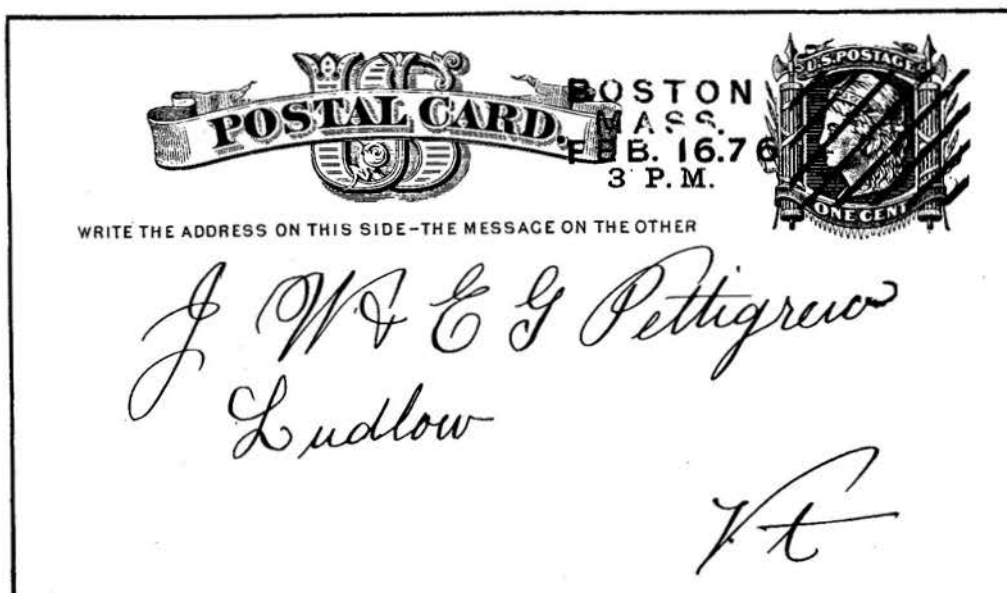 US
POSTAL CARD.
BOSTON
MASS.
FEB. 16.76
3 P.M.
U.S. POSTAGE
ONE CENT
WRITE THE ADDRESS ON THIS SIDE-THE MESSAGE ON THE OTHER
J W & E G Pettigrew
Ludlow
Vt